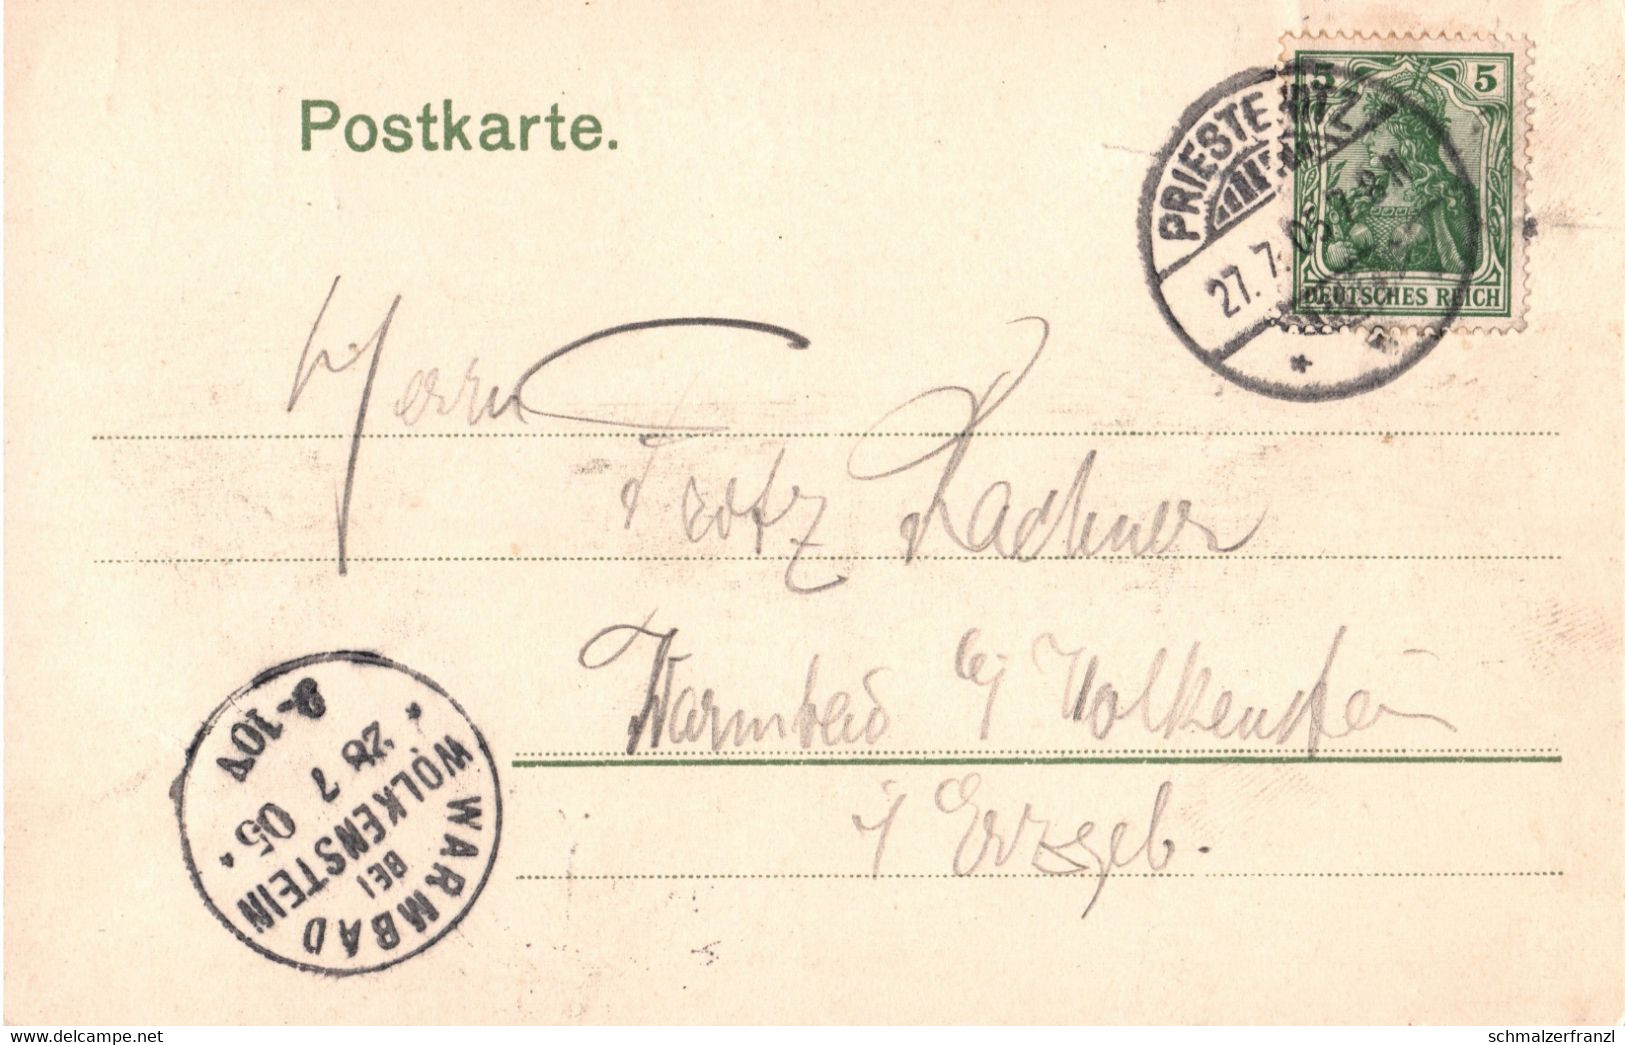 Postkarte.
5 5
DEUTSCHES REICH
PRIESTEWITZ
27.7.05 7-8N
Herrn
Fritz Lachner
Warmbad b/ Wolkenstein
i/ Erzgeb.
WARMBAD
BEI
WOLKENSTEIN
28 7 05
9-10V
www.delcampe.net
schmalzerfranzl